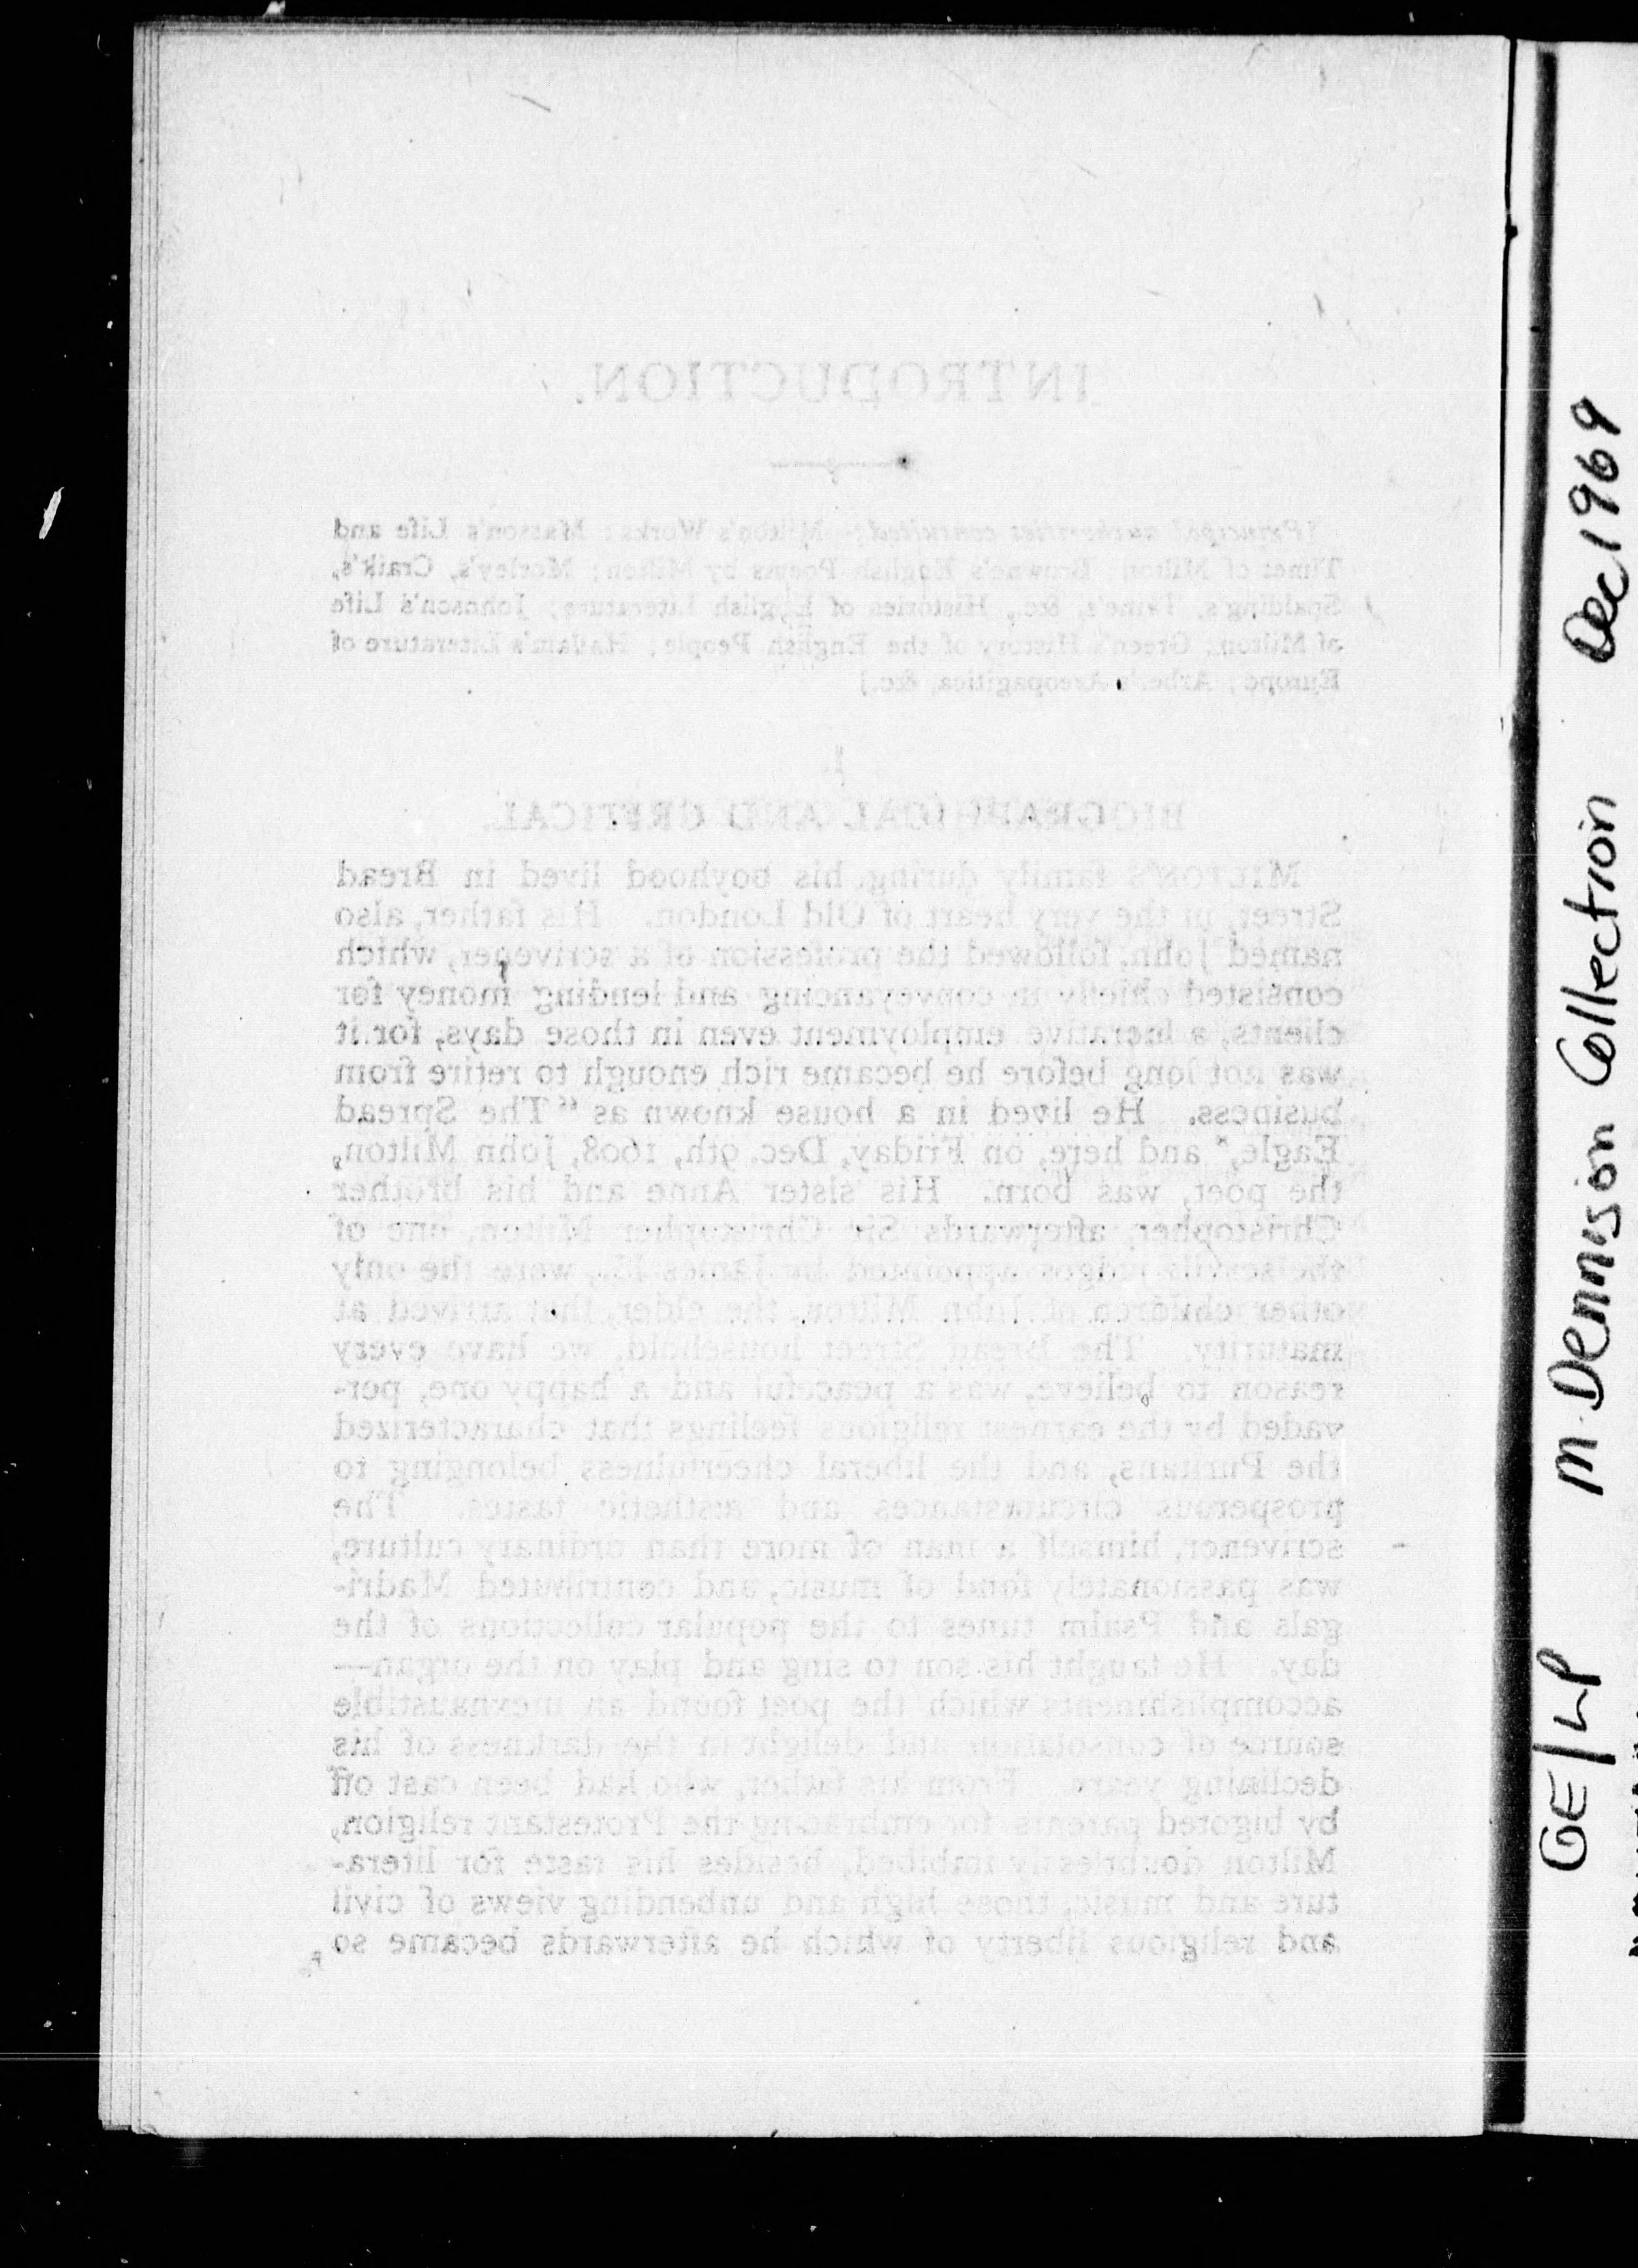 INTRODUCTION.
[Principal authorities consulted:- Milton's Works: Masson's Life and
Times of Milton; Browne's English Poems by Milton; Morley's, Craik's,
Spalding's, Taine's, &c., Histories of English Literature; Johnson's Life
of Milton; Green's History of the English People; Hallam's Literature of
Europe; Arber's Areopagitica, &c.]
I.
BIOGRAPHICAL AND CRITICAL.
MILTON'S family during his boyhood lived in Bread
Street, in the very heart of Old London. His father, also
named John, followed the profession of a scrivener, which
consisted chiefly in conveyancing and lending money for
clients, a lucrative employment even in those days, for it
was not long before he became rich enough to retire from
business. He lived in a house known as "The Spread
Eagle," and here, on Friday, Dec. 9th, 1608, John Milton,
the poet, was born. His sister Anne and his brother
Christopher, afterwards Sir Christopher Milton, one of
the servile judges appointed by James II., were the only
other children of John Milton, the elder, that arrived at
maturity. The Bread Street household, we have every
reason to believe, was a peaceful and a happy one, per-
vaded by the earnest religious feelings that characterized
the Puritans, and the liberal cheerfulness belonging to
prosperous circumstances and æsthetic tastes. The
scrivener, himself a man of more than ordinary culture,
was passionately fond of music, and contributed Madri-
gals and Psalm tunes to the popular collections of the
day. He taught his son to sing and play on the organ—
accomplishments which the poet found an inexhaustible
source of consolation and delight in the darkness of his
declining years. From his father, who had been cast off
by bigoted parents for embracing the Protestant religion,
Milton doubtlessly imbibed, besides his taste for litera-
ture and music, those high and unbending views of civil
and religious liberty of which he afterwards became so
GE/LP M. Dennison Collection Dec 1969